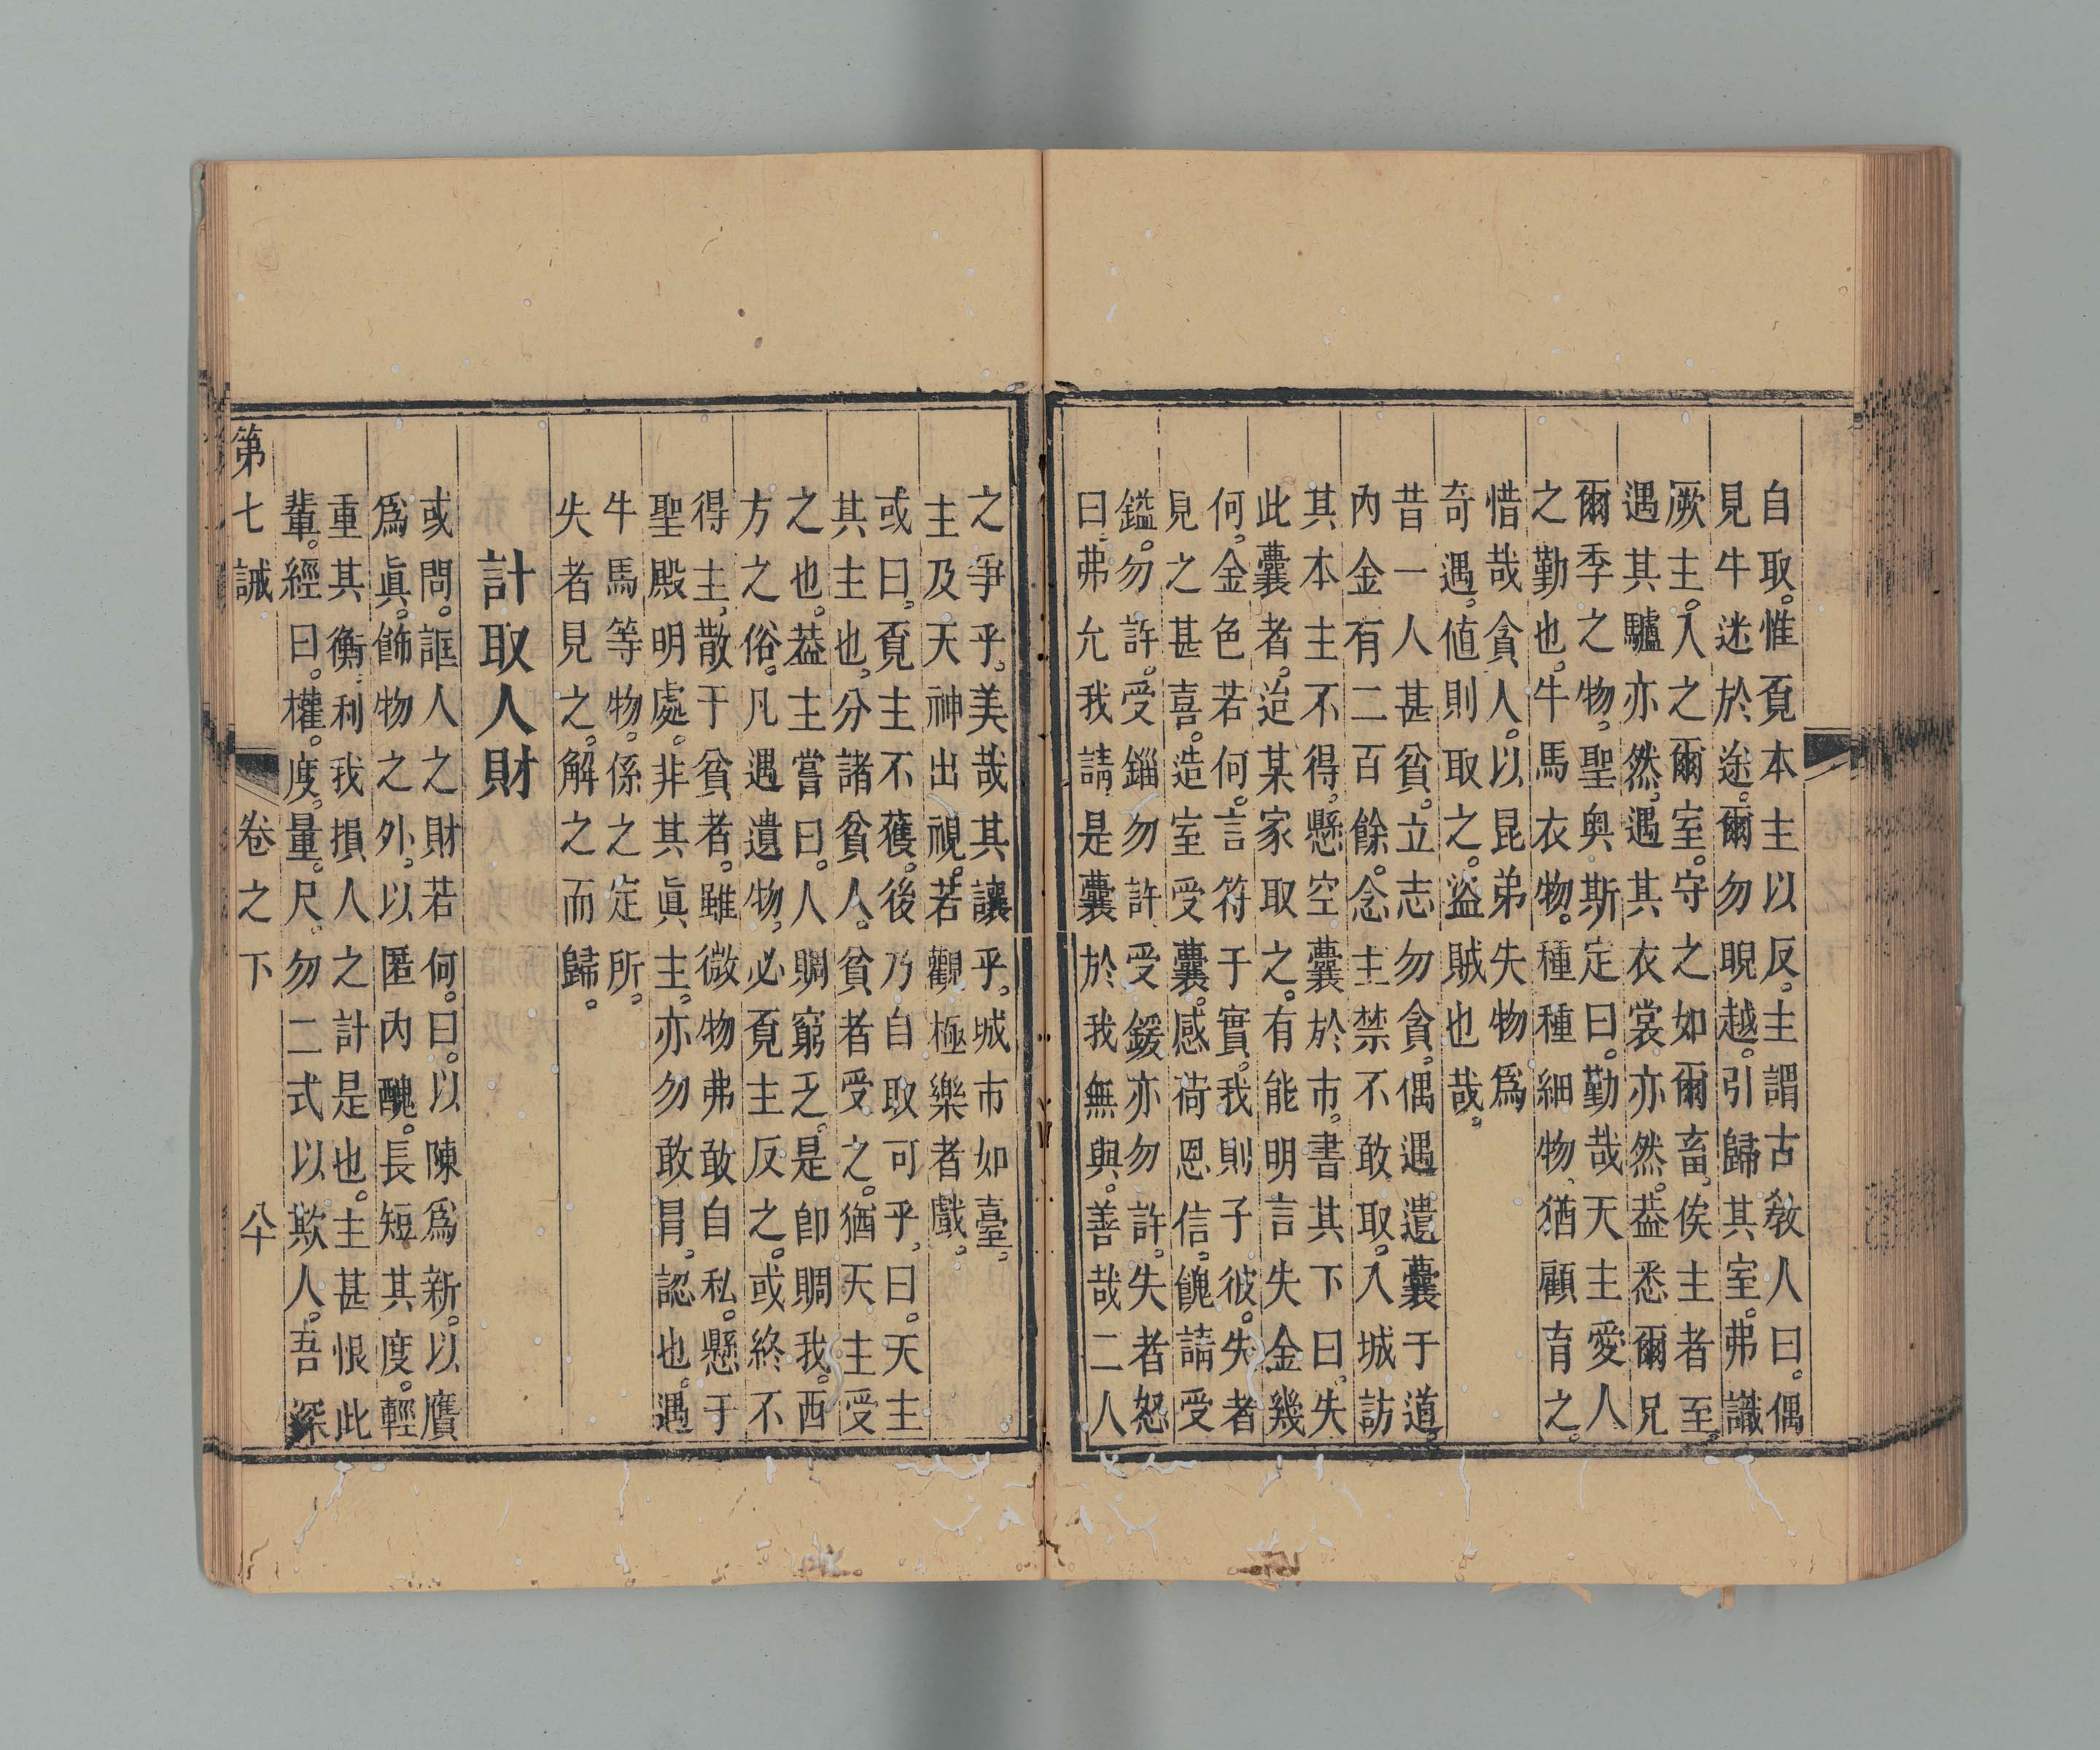 自取。惟覔本主以反。主謂古敎人曰。偶
見牛迷於途。爾勿睨越。引歸其室。弗識
厥主。入之爾室。守之如爾畜。俟主者至。
遇其驢亦然。遇其衣裳亦然。葢悉爾兄
爾季之物。聖奥斯定曰。勤哉天主愛人
之勤也。牛馬衣物。種種細物。猶顧育之。
惜哉貪人。以昆弟失物爲
奇遇。値則取之。盜賊也哉。
昔一人甚貧。立志勿貪。偶遇遺囊于道。
內金有二百餘。念主禁不敢取。入城訪
其本主不得。懸空囊於市。書其下曰。失
此囊者。迨某家取之。有能明言失金幾
何。金色若何。言符于實。我則子彼。失者
見之甚喜。造室受囊。感荷恩信。餽請受
鎰。勿許。受錙勿許。受鍰亦勿許。失者怒
曰。弗允我請。是囊於我無與。善哉二人
之爭乎。美哉其讓乎。城市如臺。
主及天神出視。若觀極樂者戲。
或曰。覔主不獲。後乃自取可乎。曰。天主
其主也。分諸貧人。貧者受之。猶天主受
之也。葢主嘗曰。人賙窮乏。是卽賙我。西
方之俗。凡遇遺物。必覔主反之。或終不
得主。散于貧者。雖微物弗敢自私。懸于
聖殿明處。非其眞主。亦勿敢冐認也。遇
牛馬等物。係之定所。
失者見之。解之而歸。
計取人財
或問。誆人之財若何。曰。以陳爲新。以贋
爲眞。飾物之外。以匿內醜。長短其度。輕
重其衡。利我損人之計是也。主甚恨此
輩。經曰。權。度。量。尺。勿二式以欺人。吾深
第七誡 卷之下 八十